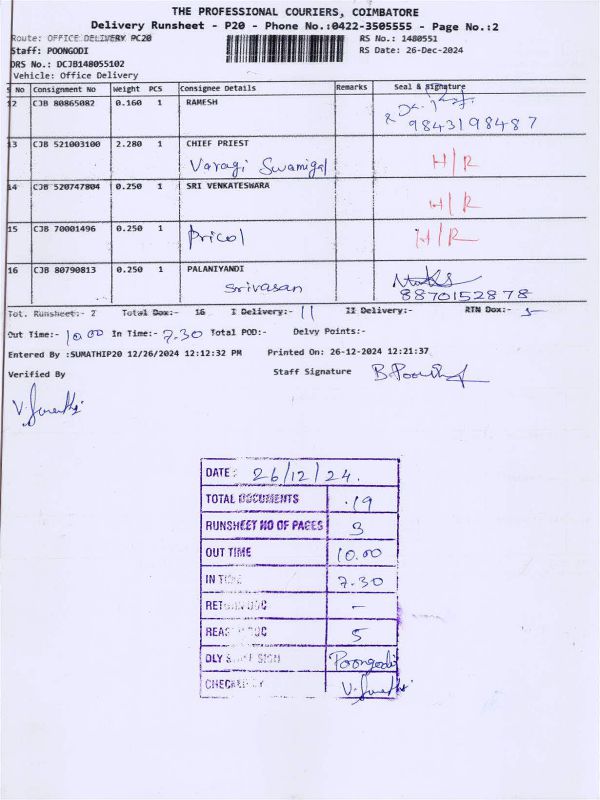 THE PROFESSIONAL COURIERS, COIMBATORE
Delivery Runsheet - P20 - Phone No.:0422-3505555 - Page No.:2
Route: OFFICE DELIVERY PC20 RS No.: 1480551
Staff: POONGODI RS Date: 26-Dec-2024
DRS No.: DCJB148055102
Vehicle: Office Delivery
S No Consignment No Weight PCS Consignee Details Remarks Seal & Signature
12 CJB 80865082 0.160 1 RAMESH
9843198487
13 CJB 521003100 2.280 1 CHIEF PRIEST
Varagi Swamigal H/R
14 CJB 520747804 0.250 1 SRI VENKATESWARA
H/R
15 CJB 70001496 0.250 1 Pricol H/R
16 CJB 80790813 0.250 1 PALANIYANDI
Srivasan 8870152878
Tot. Runsheet:- 2 Total Dox:- 16 I Delivery:- 11 II Delivery:- RTN Dox:- 5
Out Time:- 10.00 In Time:- 7.30 Total POD:- Delvy Points:-
Entered By :SUMATHIP20 12/26/2024 12:12:32 PM Printed On: 26-12-2024 12:21:37
Verified By Staff Signature
DATE: 26/12/24.
TOTAL DOCUMENTS 19
RUNSHEET NO OF PAGES 3
OUT TIME 10.00
IN TIME 7.30
RETURN DOC -
REAS DOC 5
DLY STAFF SIGN Poongodi
CHECKED BY